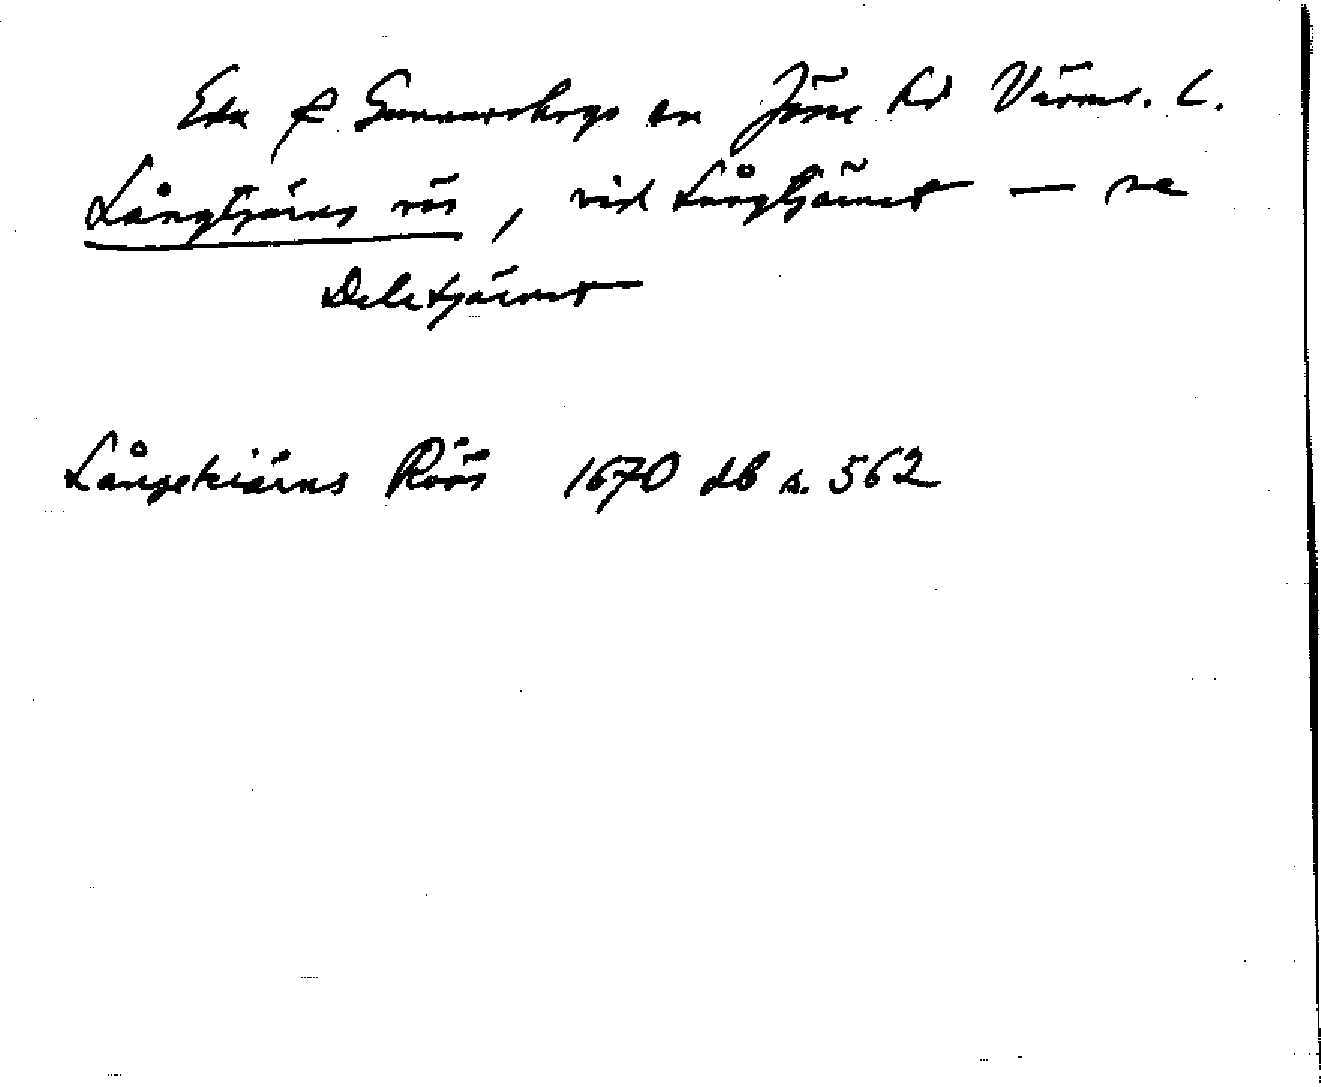 Eda sn Gunnarskogs sn Jösse hd Värml. l.
Långtjärns rös, vid Långtjärnet — se
Deletjärnet
Långetiärns Röös 1670 db s. 562